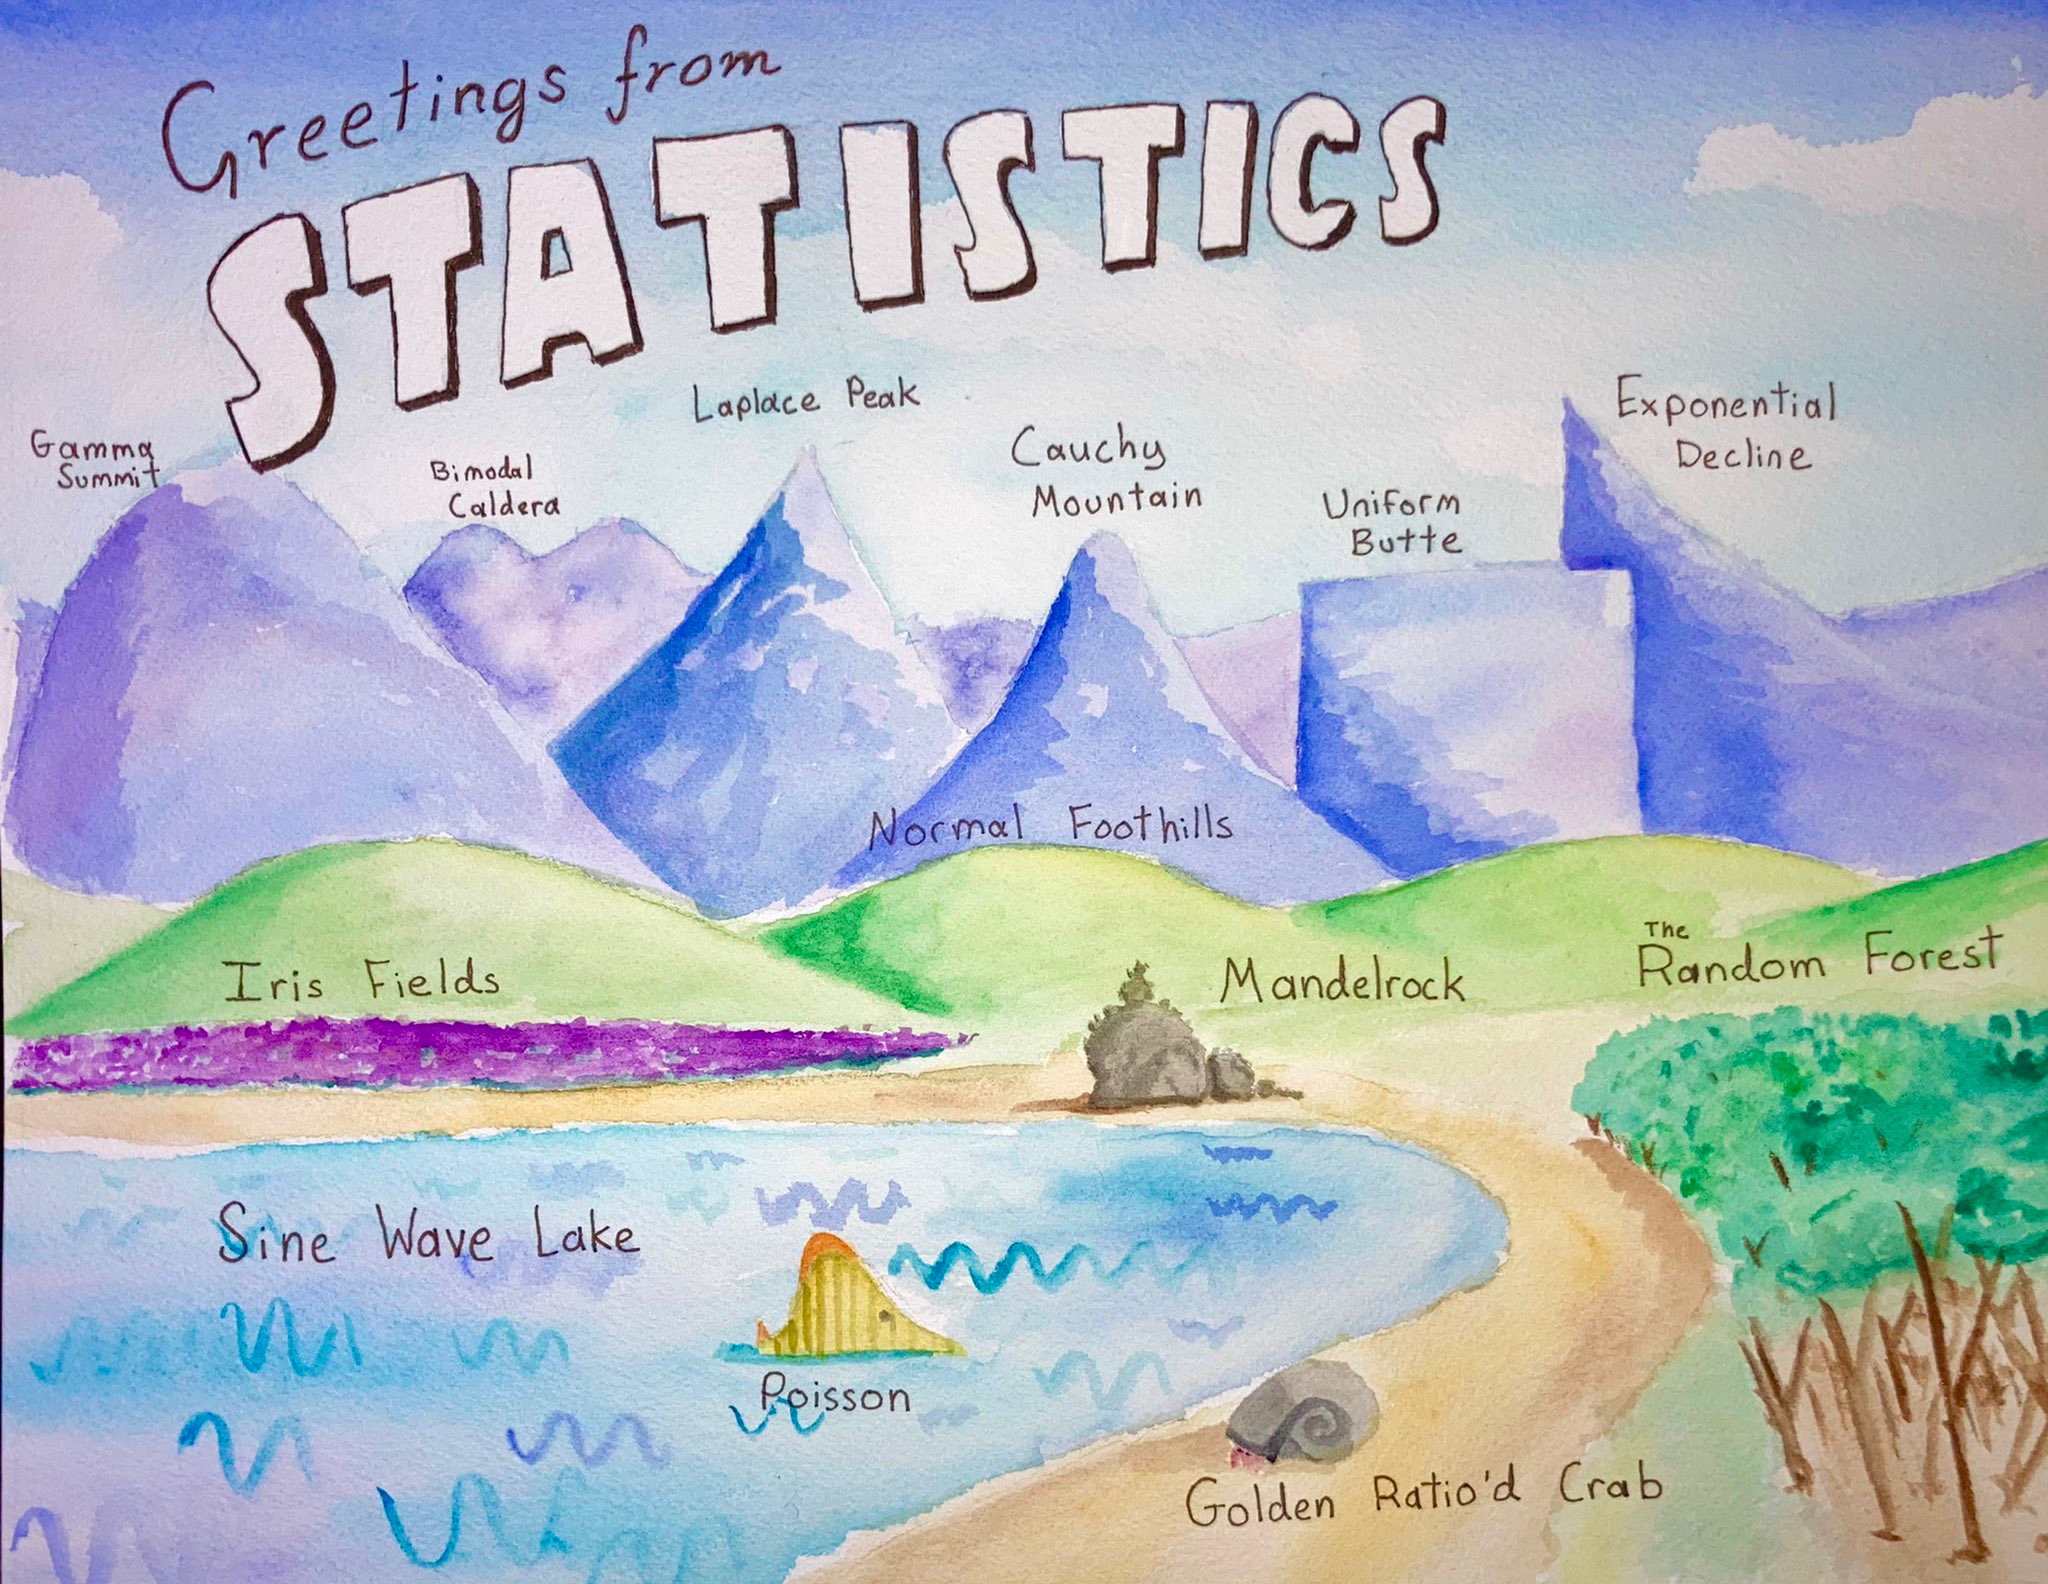 Greetings from
STATISTICS
Laplace Peak
Gamma
Summit
Bimodal
Caldera
Cauchy
Mountain
Uniform
Butte
Exponential
Decline
Normal Foothills
Iris Fields
Mandelrock
The
Random Forest
Sine Wave Lake
Poisson
Golden Ratio'd Crab